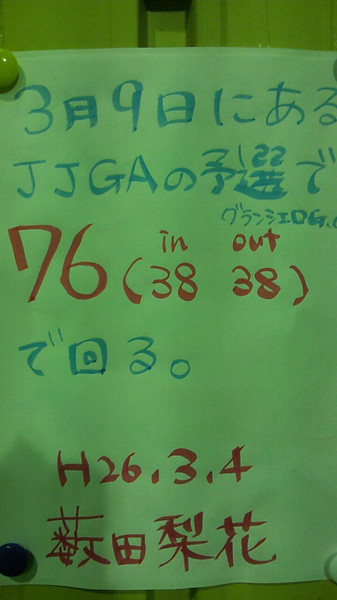 3月9日にある
JJGAの予選で
グランシエロG.C
in out
76(38 38)
で回る。
H26.3.4
薮田梨花